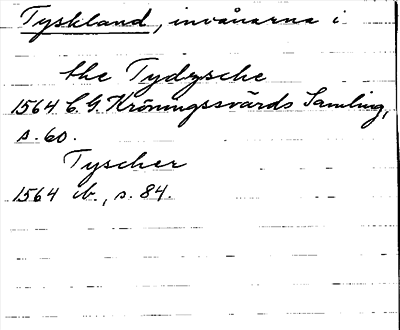 Tyskland, invånarna i
the Tydzsche
1564 C. G. Kröningssvärds Samling,
s. 60.
Tyscher
1564 ib., s. 84.